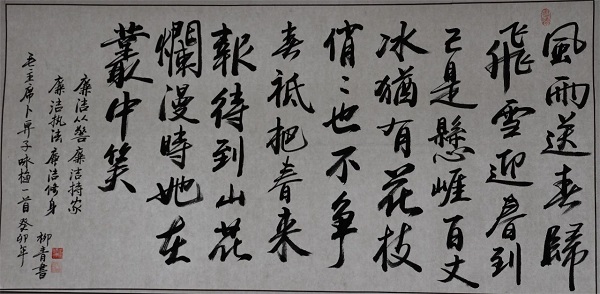 風雨送春歸
飛雪迎春到
已是懸崖百丈
冰猶有花枝
俏〻也不争
春祇把春来
報待到山花
爛漫時她在
叢中笑
廉洁从警廉洁持家
廉洁执法廉洁修身
毛主席卜算子咏梅一首癸卯年
柳青書